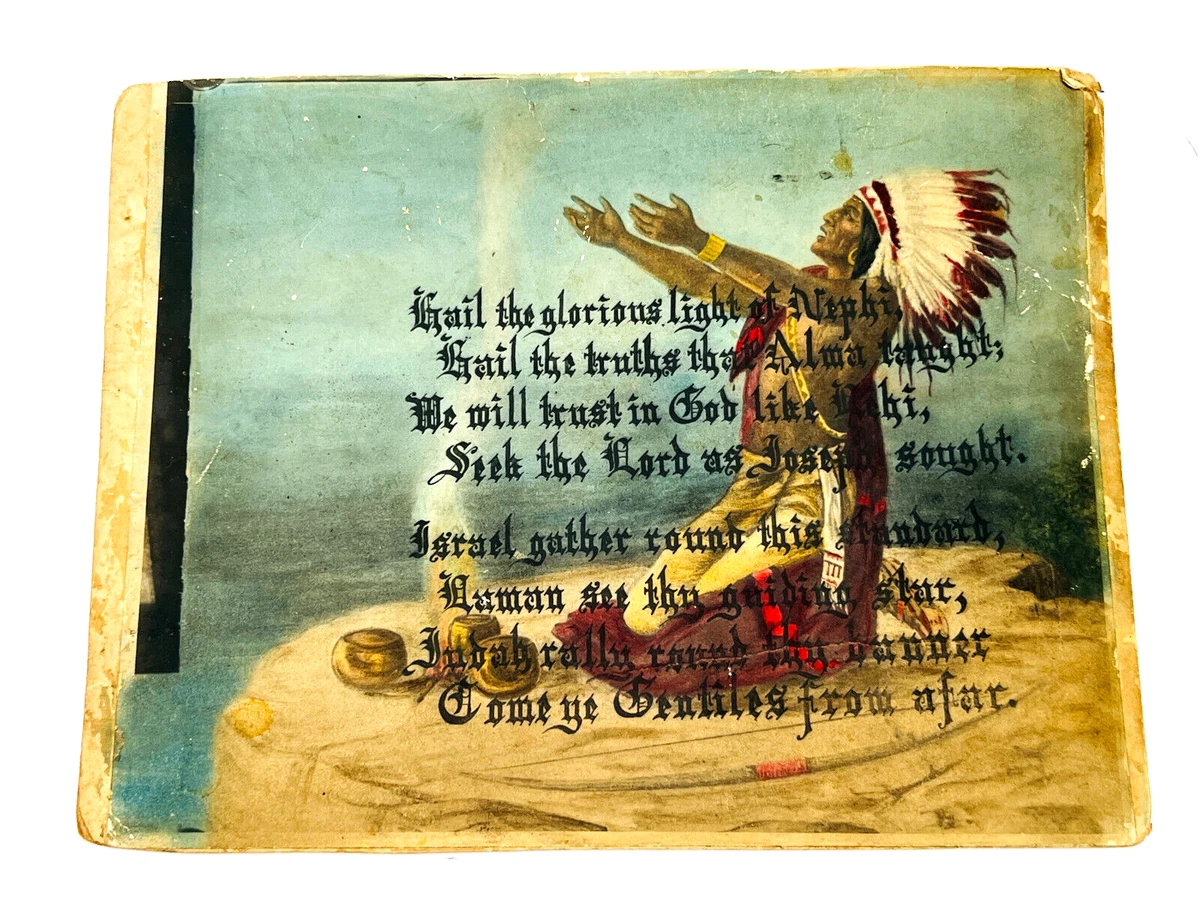 Hail the glorious light of Nephi,
Hail the truths that Alma taught;
We will trust in God like Nephi,
Seek the Lord as Joseph sought.
Israel gather round this standard,
Laman see thy guiding star,
Judah rally round thy banner
Come ye Gentiles from afar.